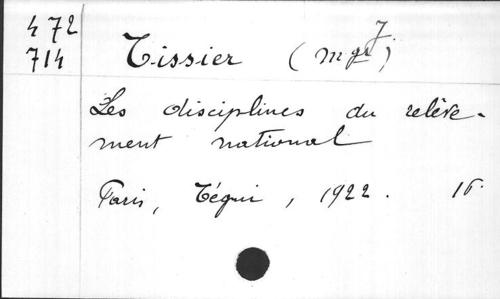 472
714
Tissier (mgr)
Les disciplines du relève-
ment national
Paris, Téqui, 1922. 16.